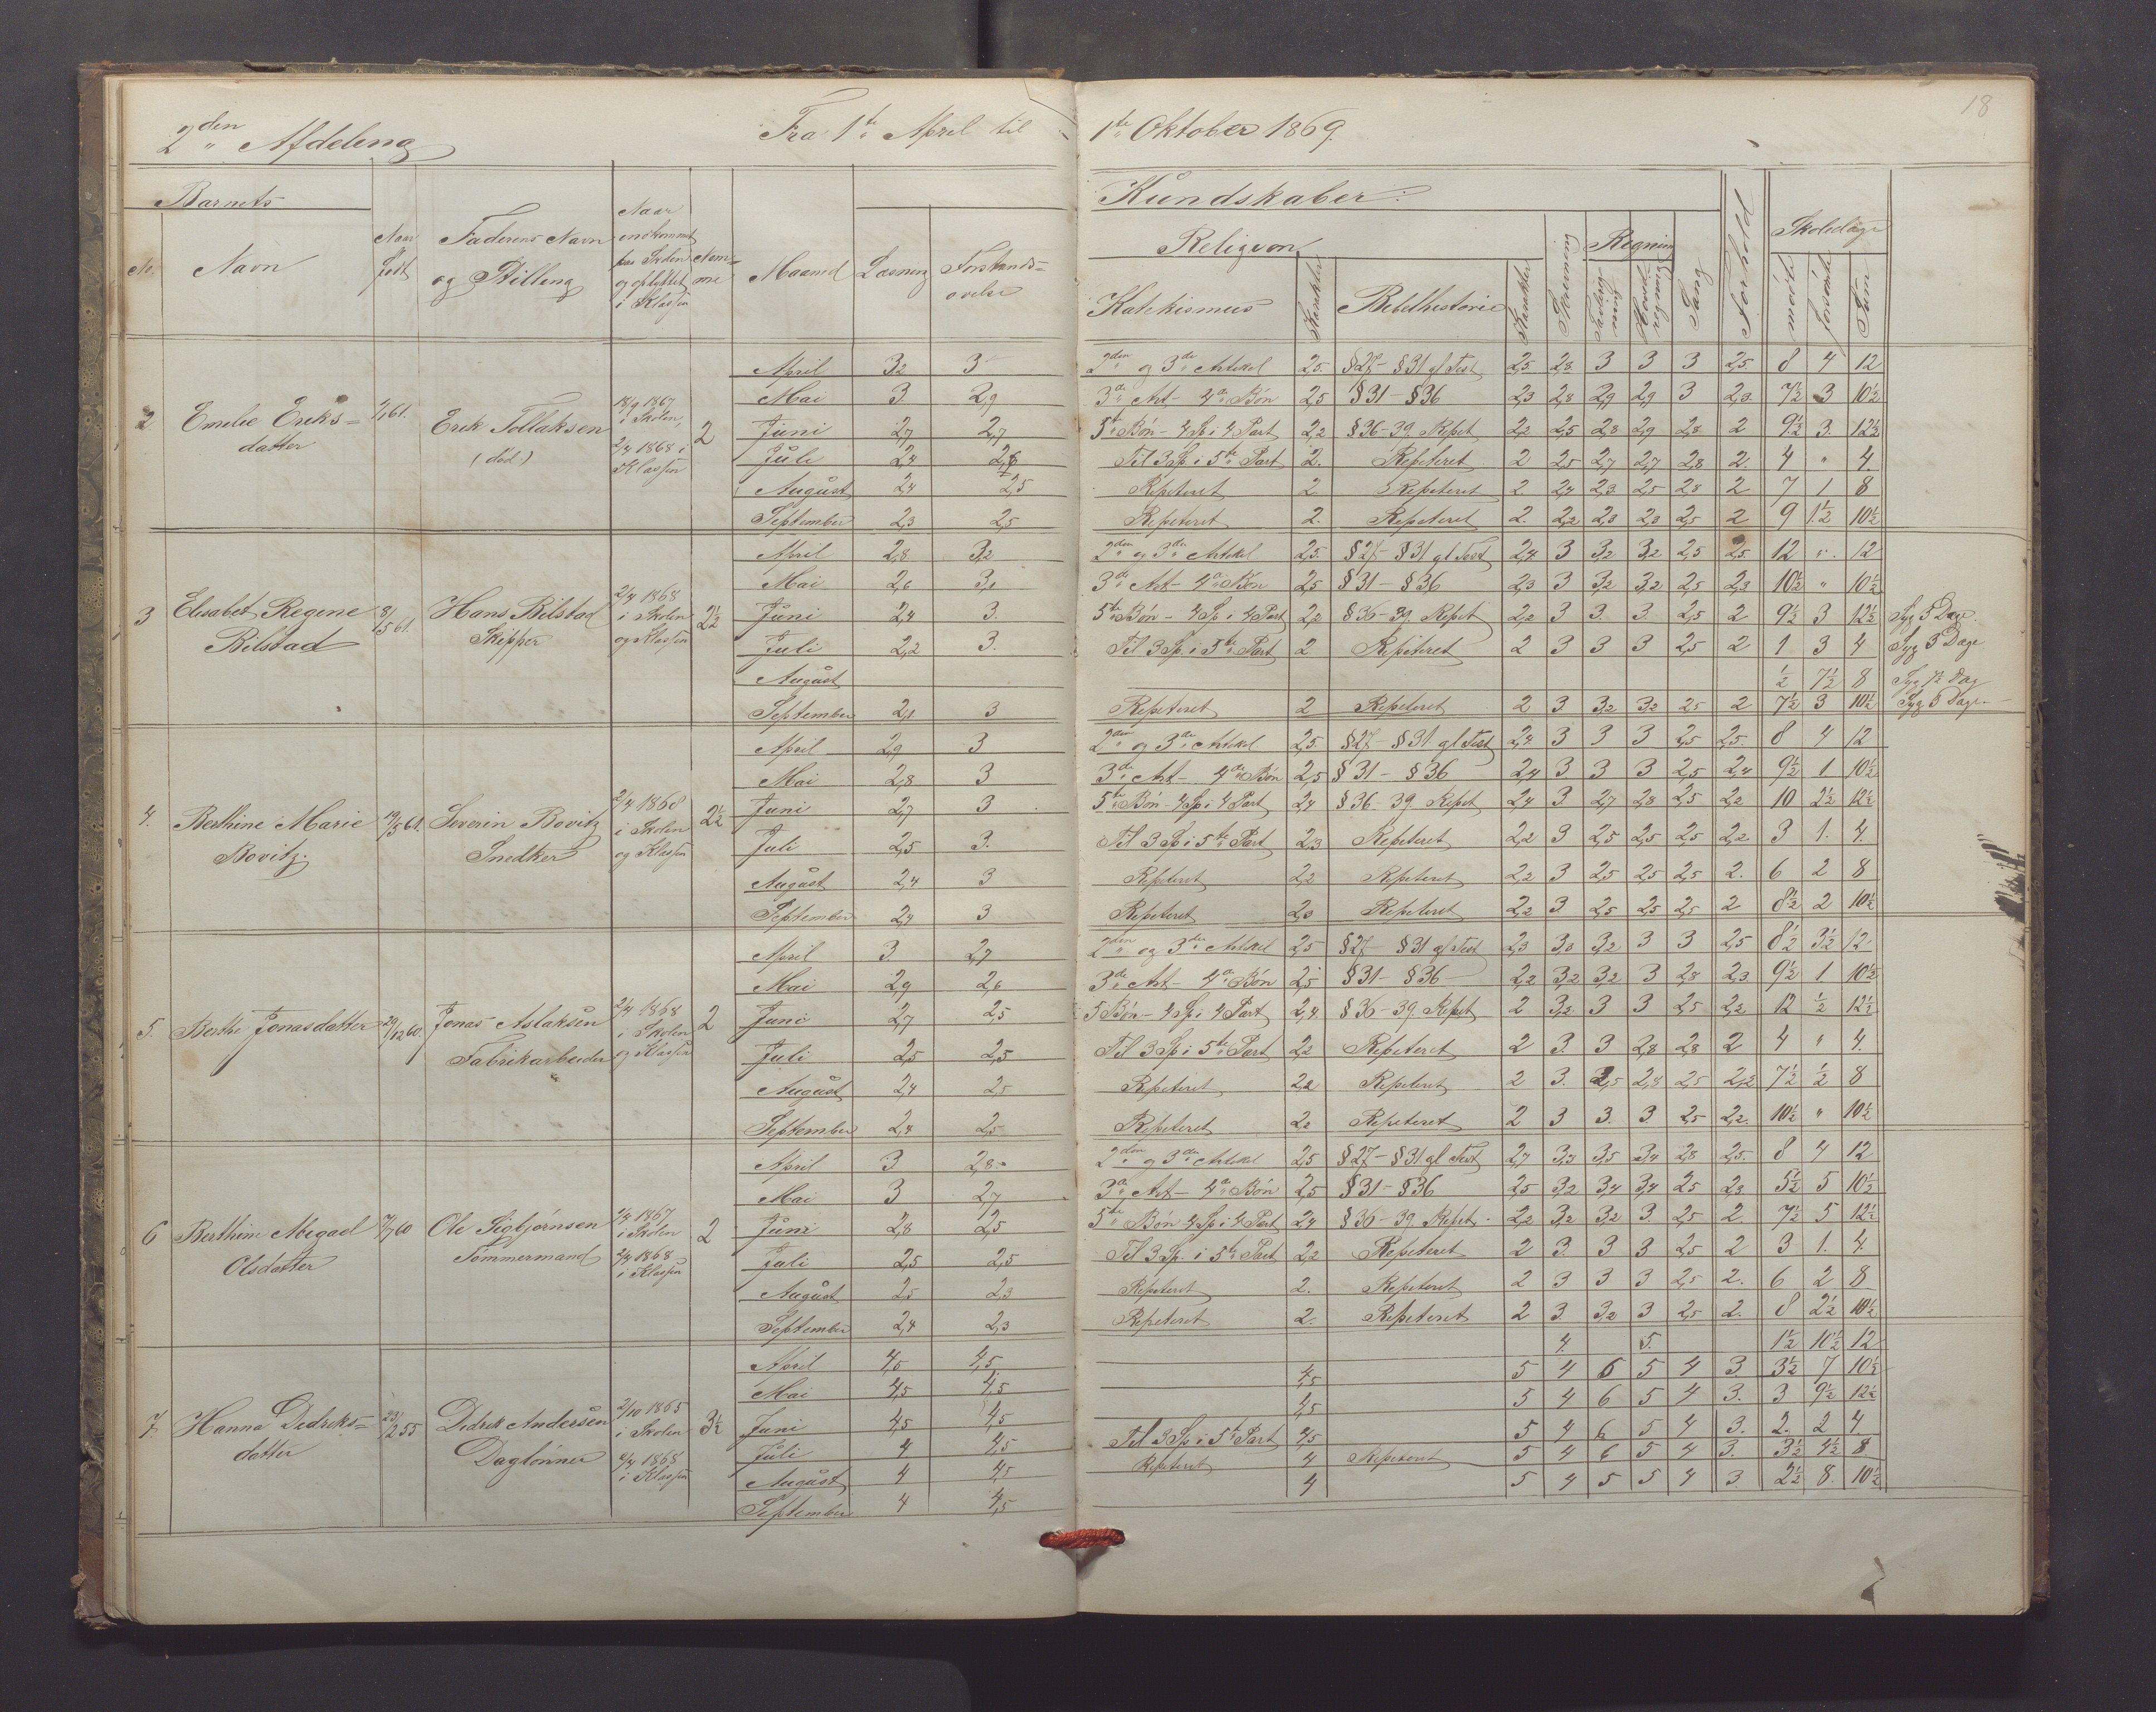 18
2den Afdeling Fra 1ste April til 1ste Oktober 1869.
Barnets Kundskaber: Forhold Skoledage
No. Navn Naar født Faderens Navn og Stilling Naar indkommet paa Skolen og opflyttet i Klassen Nummer Maaned Læsning Forstands=øvelse Religion Katekismus Karakter Bibelhistorie Karakter Skrivning Regning Tavleregning Hovedregning Sang mødte forsømte Sum
2 Emelie Eriks=datter Erik Tollaksen (død) 18/9 1867 i Skolen, 2/4 1868 i Klassen 2
April 3,2 3 2den og 3die Artikel 2,5. §27-§31 gl Test 2,5. 2,8. 3 3 3 2,5. 8 4 12
Mai 3. 2,9 3die Art- 4de Bøn 2,5 §31-§36 2,3 2,8 2,9 2,9 3 2,3 7½ 3 10½
Juni 2,7 2,7 5te Bøn-4 Sp i 4 Part 2,2 §36-39. Repet 2,2 2,5 2,8 2,9 2,8 2 9½ 3. 12½
Juli 2,4 Til 3 Sp i 5te Part 2. Repeteret 2 2,5 2,7 2,7 2,8 2. 4 " 4.
August 2,4 2,5 Repeteret 2 Repeteret 2. 2,4 2,3 2,5 2,8 2 7 1 8
September 2,3 2,5 Repeteret 2. Repeteret 2. 2,2 2,3 2,3 2,5 2 9 1½ 10½
3 Elisabet Regine Bilstad 8/5 61. Hans Bilstad Skipper 2/4 1868 i Skolen og Klassen 2½
April 2,8 3,2 2den og 3die Artikel 2,5. §27-§31 gl Test 2,4 3 3,2 3,2 2,5 2,5. 12 " 12
Mai 2,6 3,1 3die Art- 4de Bøn 2,5 §31-§36 2,3 3 3,2 3,2 2,5 2,3 10½ " 10½
Juni 2,4 3. 5te Bøn-4 Sp i 4 Part 2,2 §36-39. Repet 2,2 3 3. 3. 2,5 2 9½ 3 12½ Syg 3 Dage.
Juli 2,2 3. Til 3 Sp. i 5te Part 2 Repeteret 2 3 3 3 2,5 2 1 3 4 Syg 3 Dage
August ½ 7½ 8 Syg 7½ Dag
September 2,1 3 Repeteret 2 Repeteret 2 3 3,2 3,2 2,5 2 7½ 3 10½ Syg 3 Dage
4. Berthine Marie Bovitz. Severin Bovitz Snedker 2/4 1868 i Skolen og Klassen 2½
April 2,9 3 2den og 3die Artikel 2,5. §27-§31 gl Test 2,4 3 3 3 2,5 2,5. 8 4 12
Mai 2,8 3 3die Art- 4de Bøn 2,5 §31-§36 2,4 3 3 3 2,5 2,4 9½ 1 10½
Juni 2,7 3 5te Bøn-4 Sp i 4 Part 2,4 §36-39. Repet 2,4 3. 2,7 2,8 2,5 2,2 10 2½ 12½
Juli 2,5 3. Til 3 Sp i 5te Part 2,3 Repeteret 2,2 3 2,5 2,5 2,5 2,2 3 1. 4.
August 2,4 3 Repeteret 2,2 Repeteret 2,2 3 2,5 2,5 2,5 2. 6 2 8
September 2,4 3 Repeteret Repeteret 2,2 3 2,5 2,5 2,5 2 8½ 2 10½
5. Berthe Jonasdatter 29/12 60. Jonas Aslaksen Fabrikarbeider 2/4 1868 i Skolen og Klassen 2
April 3. 2,7 2den og 3die Artikel 2,5 §27-§31 gl Test 2,3 3,2 3 3 2,5 8½ 3½ 12
Mai 2,9 2,6 3die Art- 4de Bøn 2,5 §31-§36 2,2 3,2 3,2 3 2,8 2,3 9½ 1 10½
Juni 2,7 2,5 5 Bøn-4 Sp i 4 Part 2,4 §36-39. Repet 2 3,2 3 3 2,5 2,2 12 ½ 12½
Juli 2,5 2,5 Til 3 Sp i 5te Part 2,2 Repeteret 2 3. 3 2,8 2,8 2 4 " 4.
August 2,4 2,5 Repeteret 2,2 Repeteret 2 3. 2,5 2,8 2,5 2,2 7½ ½ 8
September 2,4 2,5 Repeteret 2,2 Repeteret 2 3 3. 3. 2,5 2,2. 10½ " 10½
6 Berthine Abigael Olsdatter Ole Sigbjørnsen Tømmermand 1867 i Skolen 2/4 1868 i Klassen 2
April 3 2,8. 2den og 3die Artikel 2,5 §27-§31 gl Test 2,7 3,3 3,5 3,4 2,8 2,5. 8 4 12
Mai 3 2,7 3die Art- 4de Bøn 2,5 §31-§36 2,5 3,2 3,4 3,4 2,5 2,3 5½ 5 10½
Juni 2,8 2,5 5te Bøn 4 Sp i 4 Part 2,4 §36-39. Repet. 2,2 3,2 3,2 3. 2,5 2. 7½ 5 12½
Juli 2,5 2,5 Til 3 Sp. i 5te Part 2,2 Repeteret 2 3. 3 3 2,5 2 3 1. 4.
August 2,5 2,3 Repeteret 2. Repeteret 2 3 3. 3 2,5 2. 6 2 8
September 2,4 2,3 Repeteret 2. Repeteret 2 3. 3,2 3 2,5 2. 8 2½ 10½
7. Hanna Didriks=datter 23/2 55 Didrik Andersen Dagløner 2/10 1865 i Skolen 1868 i Klassen 3½
April 4,5 4. 5. 1½ 10½ 12
Mai 4,5 4,5 4,5 5 4 6 5 4 3 3½ 7 10½
Juni 4,5 4,5 4,5 5 4 6 5 4 3. 3 9½ 12½
Juli 4 4,5 Til 3 Sp i 5te Part 4,5 5 4 6 5 4 3. 2. 2 4.
August 4 4,5 Repeteret 4 Repeteret 5 4 6 5 4 3. 3½ 4½ 8
September 4 4,5 4 5 4 5 5 4 3. 2½ 8. 10½